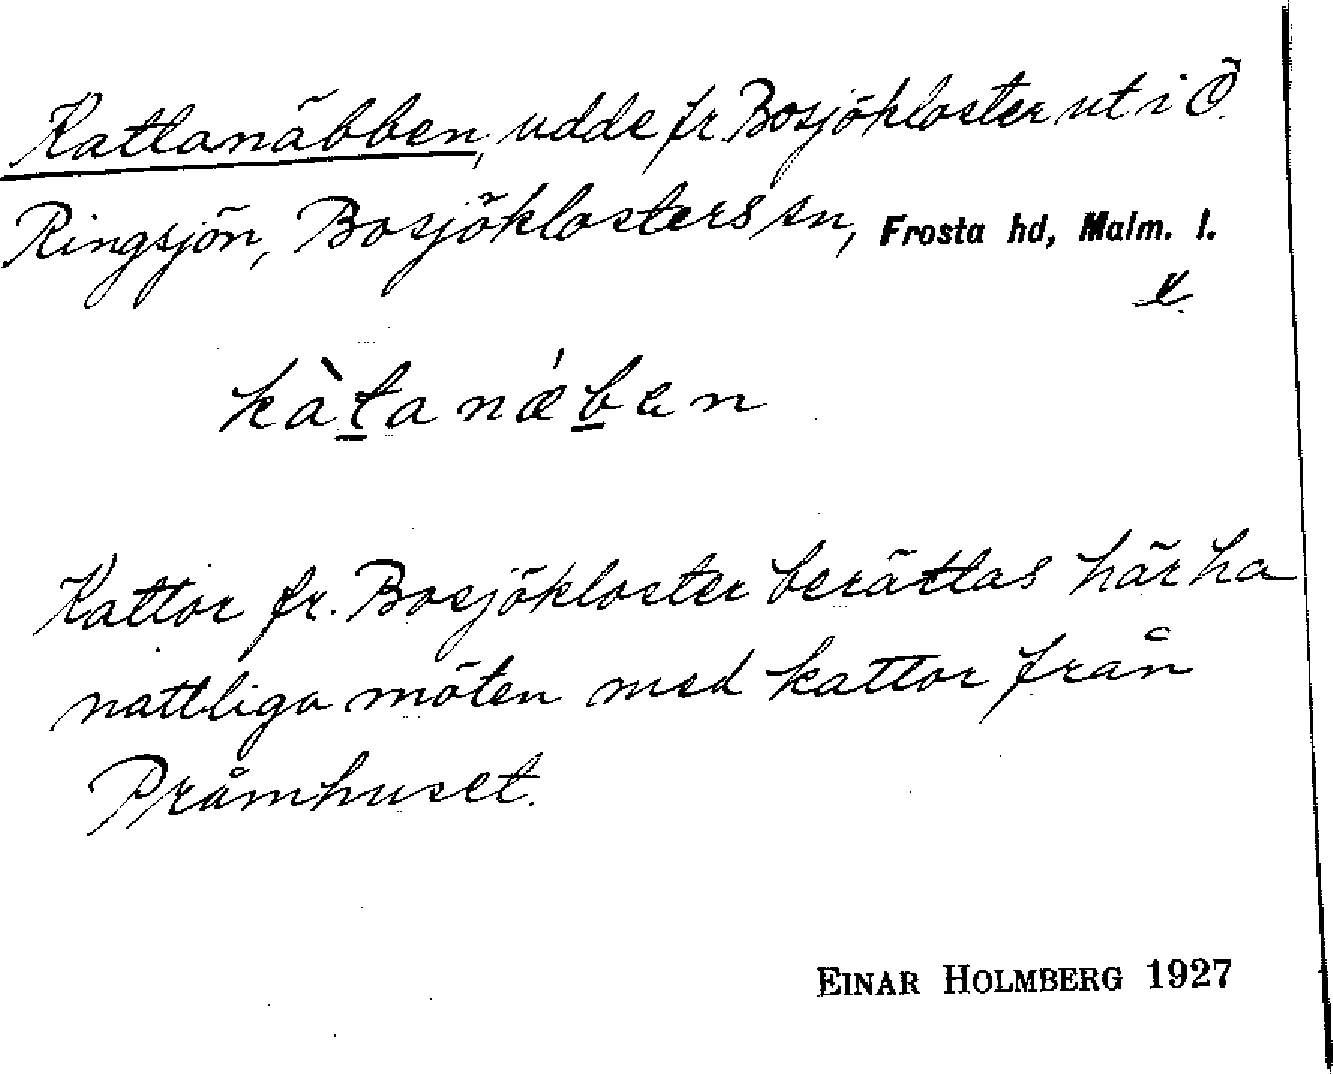 Kattanäbben, udde fr. Bosjökloster ut i Ö.
Ringsjön, Bosjöklosters sn, Frosta hd, Malm. l.
kàtanǽben
Kattor fr. Bosjökloster berättas här ha
nattliga möten med kattor från
Pråmhuset.
EINAR HOLMBERG 1927